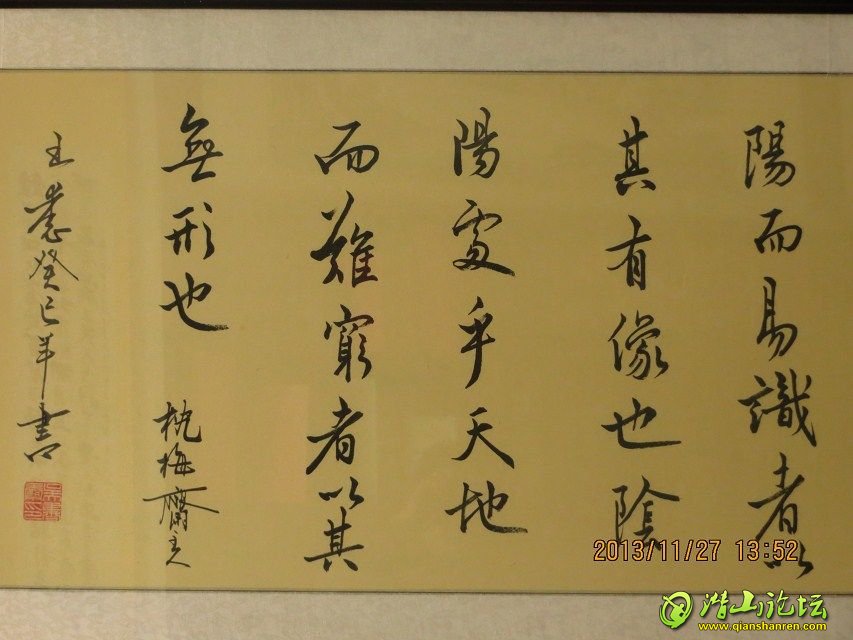 陽而易識者以
其有像也陰
陽處乎天地
而難窮者以其
無形也
枕梅齋主人
王 癸巳年書
2013/11/27 13:52
潜山论坛
www.qianshanren.com